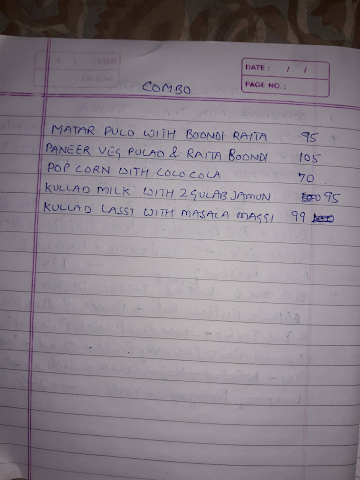 DATE : / /
PAGE NO. :
COMBO
MATAR PULO WITH BOONDI RAITA 95
PANEER VEG PULAO & RAITA BOONDI 105
POP CORN WITH COCO COLA 70
KULLAD MILK WITH 2 GULAB JAMUN 95
KULLAD LASSI WITH MASALA MAGGI 99